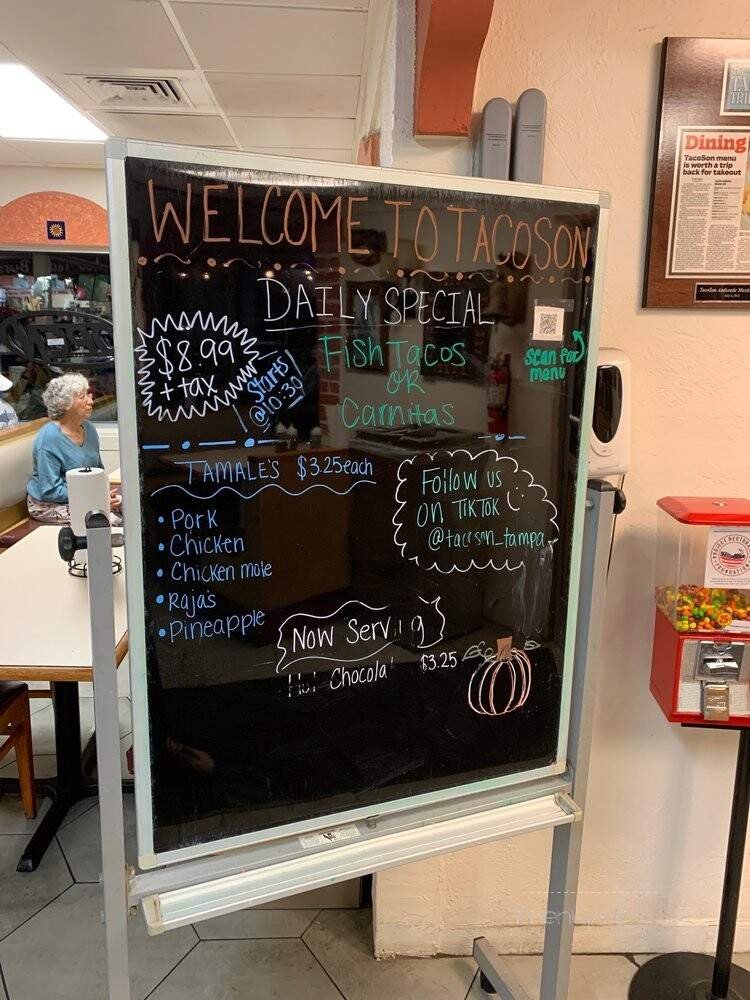 WELCOME TO TACOSON
DAILY SPECIAL
$8.99
+ tax
Starts!
@10:30
Fish Tacos
OR
Carnitas
scan for
menu
TAMALE'S $3.25 each
• Pork
• Chicken
• Chicken mole
• Rajas
• Pineapple
Follow us
on TikTok
@tacoson_tampa
Now Serv i g
Hot Chocola $3.25
Dining
TacoSon menu
is worth a trip
back for takeout
TacoSon Authentic Mexi